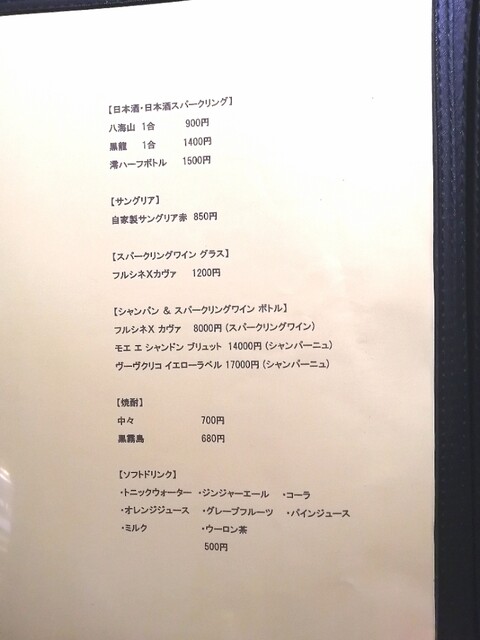 【日本酒・日本酒スパークリング】
八海山 1合 900円
黒龍 1合 1400円
澪ハーフボトル 1500円
【サングリア】
自家製サングリア赤 850円
【スパークリングワイン グラス】
フルシネXカヴァ 1200円
【シャンパン & スパークリングワイン ボトル】
フルシネX カヴァ 8000円 (スパークリングワイン)
モエ エ シャンドン ブリュット 14000円 (シャンパーニュ)
ヴーヴクリコ イエローラベル 17000円 (シャンパーニュ)
【焼酎】
中々 700円
黒霧島 680円
【ソフトドリンク】
・トニックウォーター ・ジンジャーエール ・コーラ
・オレンジジュース ・グレープフルーツ ・パインジュース
・ミルク ・ウーロン茶
500円